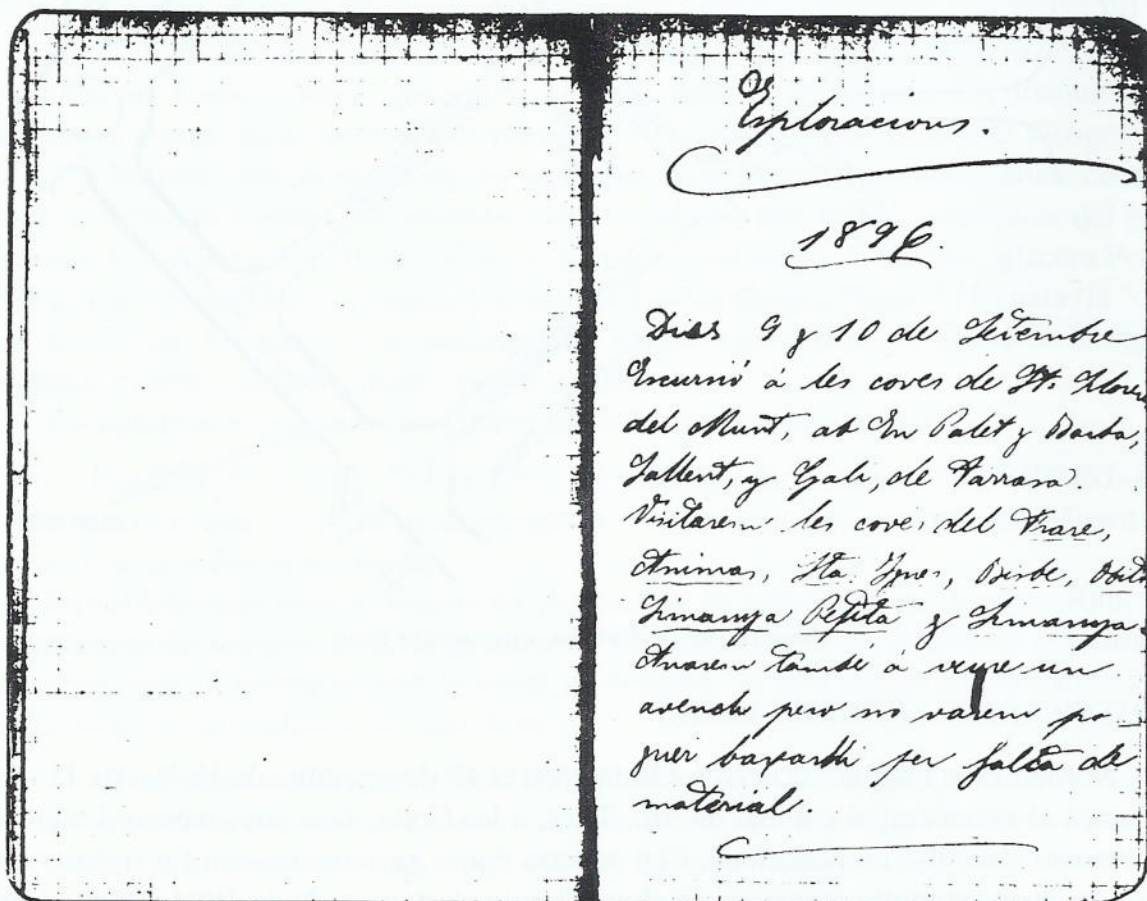 Exploracions.
1896.
Dias 9 y 10 de Setembre
Excursió á les coves de St. Llorens
del Munt, ab En Palet y Barba,
Sallent, y Gali, de Tarrasa.
Visitarem les coves del Frare,
Animas, Sta. Ynes, Bisbe,
Simanya Petita y Simanya.
Anarem també á veure un
avench pero no varem po-
guer baxarhi per falta de
material.